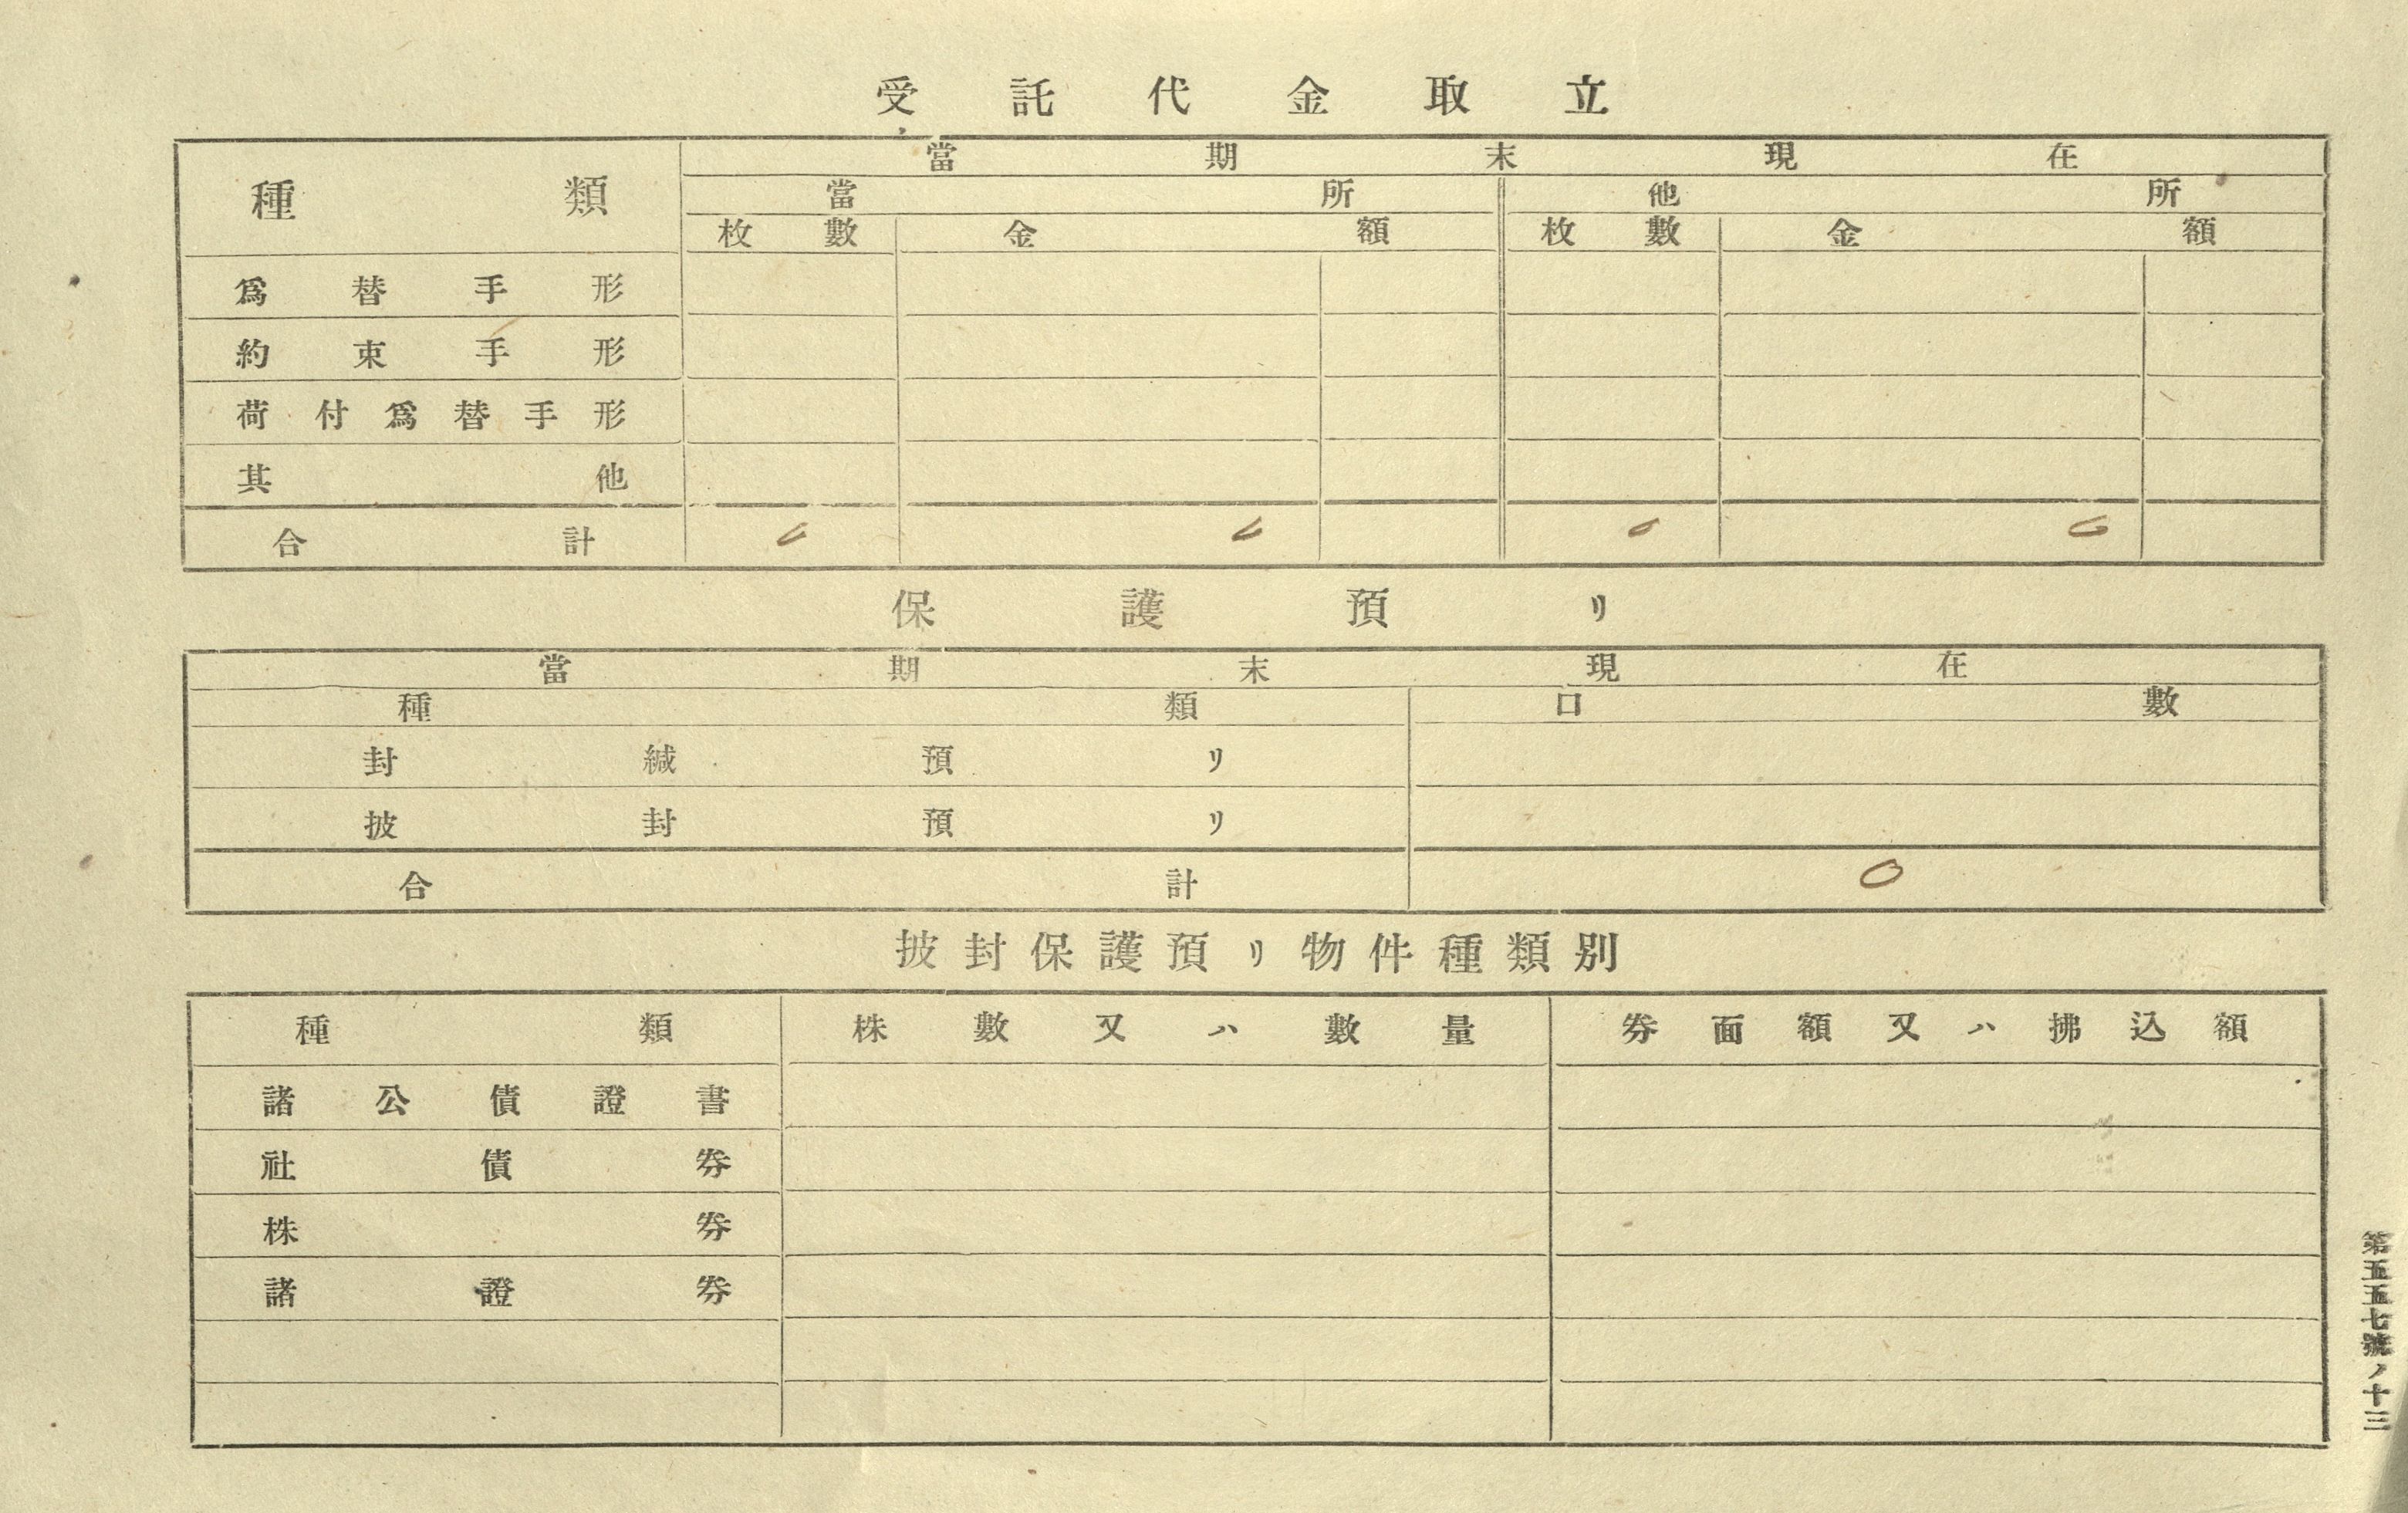 受託代金取立
種類 當期末現在
當所 他所
枚數 金額 枚數 金額
爲替手形
約束手形
荷付爲替手形
其他
合計 0 0 0 0
保護預リ
當期末現在
種類 口數
封緘預リ
披封預リ
合計 0
披封保護預リ物件種類別
種類 株數又ハ數量 券面額又ハ拂込額
諸公債證書
社債券
株券
諸證券
第五五七號ノ十三